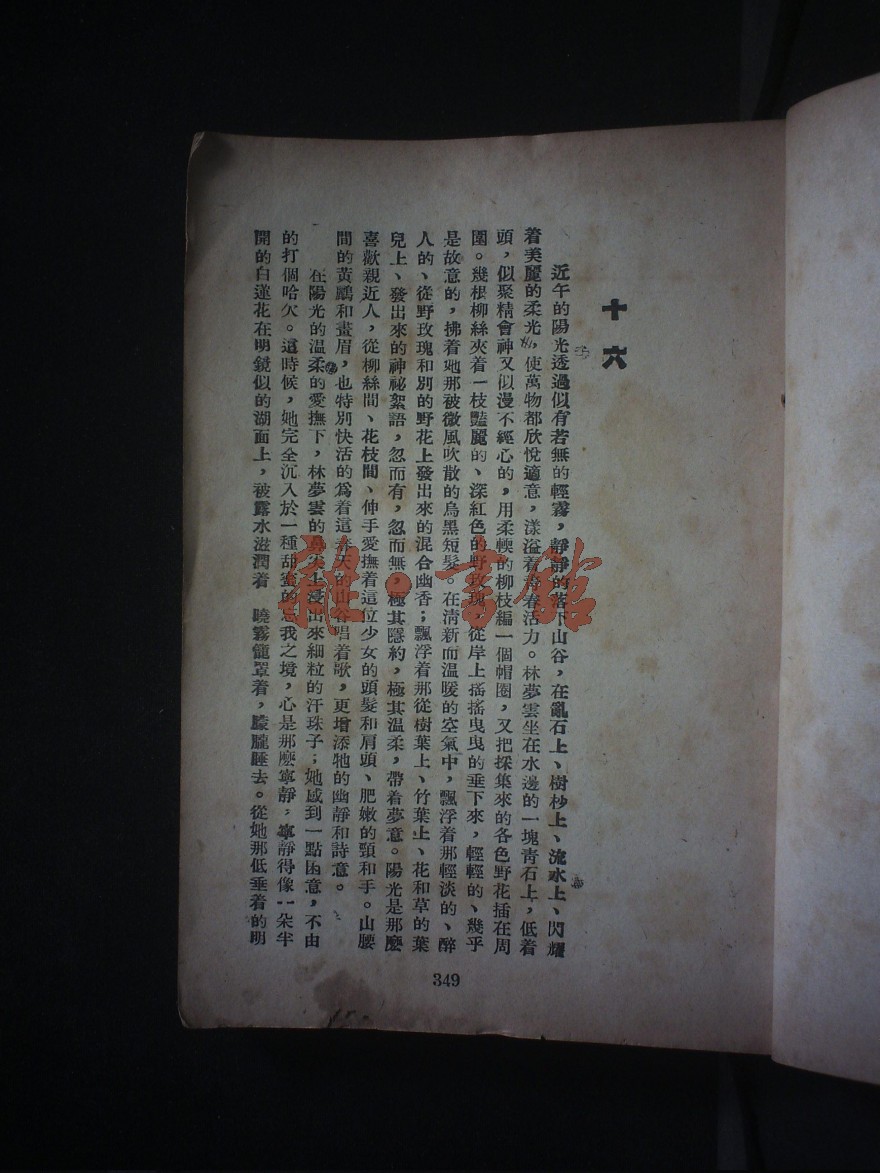 十六
近午的陽光透過似有若無的輕霧，靜靜的落下山谷，在亂石上、樹杪上、流水上、閃耀
着美麗的柔光，使萬物都欣悅適意，漾溢着青春活力。林夢雲坐在水邊的一塊靑石上，低着
頭，似聚精會神又似漫不經心的，用柔輭的柳枝編一個帽圈，又把採集來的各色野花插在周
圍。幾根柳絲夾着一枝豔麗的、深紅色的野玫瑰，從岸上搖搖曳曳的垂下來，輕輕的、幾乎
是故意的，拂着她那被微風吹散的烏黑短髮。在淸新而温暖的空氣中，飄浮着那輕淡的、醉
人的、從野玫瑰和別的野花上發出來的混合幽香；飄浮着那從樹葉上、竹葉上、花和草的葉
兒上、發出來的神祕絮語，忽而有，忽而無，極其隱約，極其温柔，帶着夢意。陽光是那麽
喜歡親近人，從柳絲間、花枝間、伸手愛撫着這位少女的頭髮和肩頭、肥嫩的頸和手。山腰
間的黃鸝和畫眉，也特別快活的爲着這春天的山谷唱着歌，更增添牠的幽靜和詩意。
在陽光的温柔的愛撫下，林夢雲的鼻尖上浸出來細粒的汗珠子；她感到一點困意，不由
的打個哈欠。這時候，她完全沉入於一種甜蜜的忘我之境，心是那麽寧靜，寧靜得像一朵半
開的白蓮花在明鏡似的湖面上，被露水滋潤着 曉霧籠罩着，朦朧睡去。從她那低垂着的明
349
雜·書館